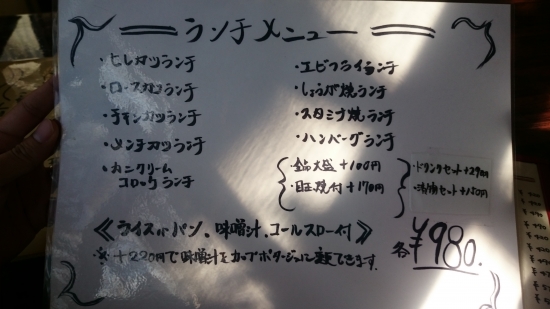 ランチメニュー
・ヒレカツランチ
・ロースカツランチ
・チキンカツランチ
・メンチカツランチ
・カニクリーム
コロッケランチ
・エビフライランチ
・しょうが焼ランチ
・スタミナ焼ランチ
・ハンバーグランチ
大盛 +100円
・目玉焼付 +170円
・ドリンクセット +290円
・漬物セット +150円
《ライスorパン、味噌汁、コールスロー付》
※ +220円で味噌汁をカップポタージュに変更できます。
各¥980.